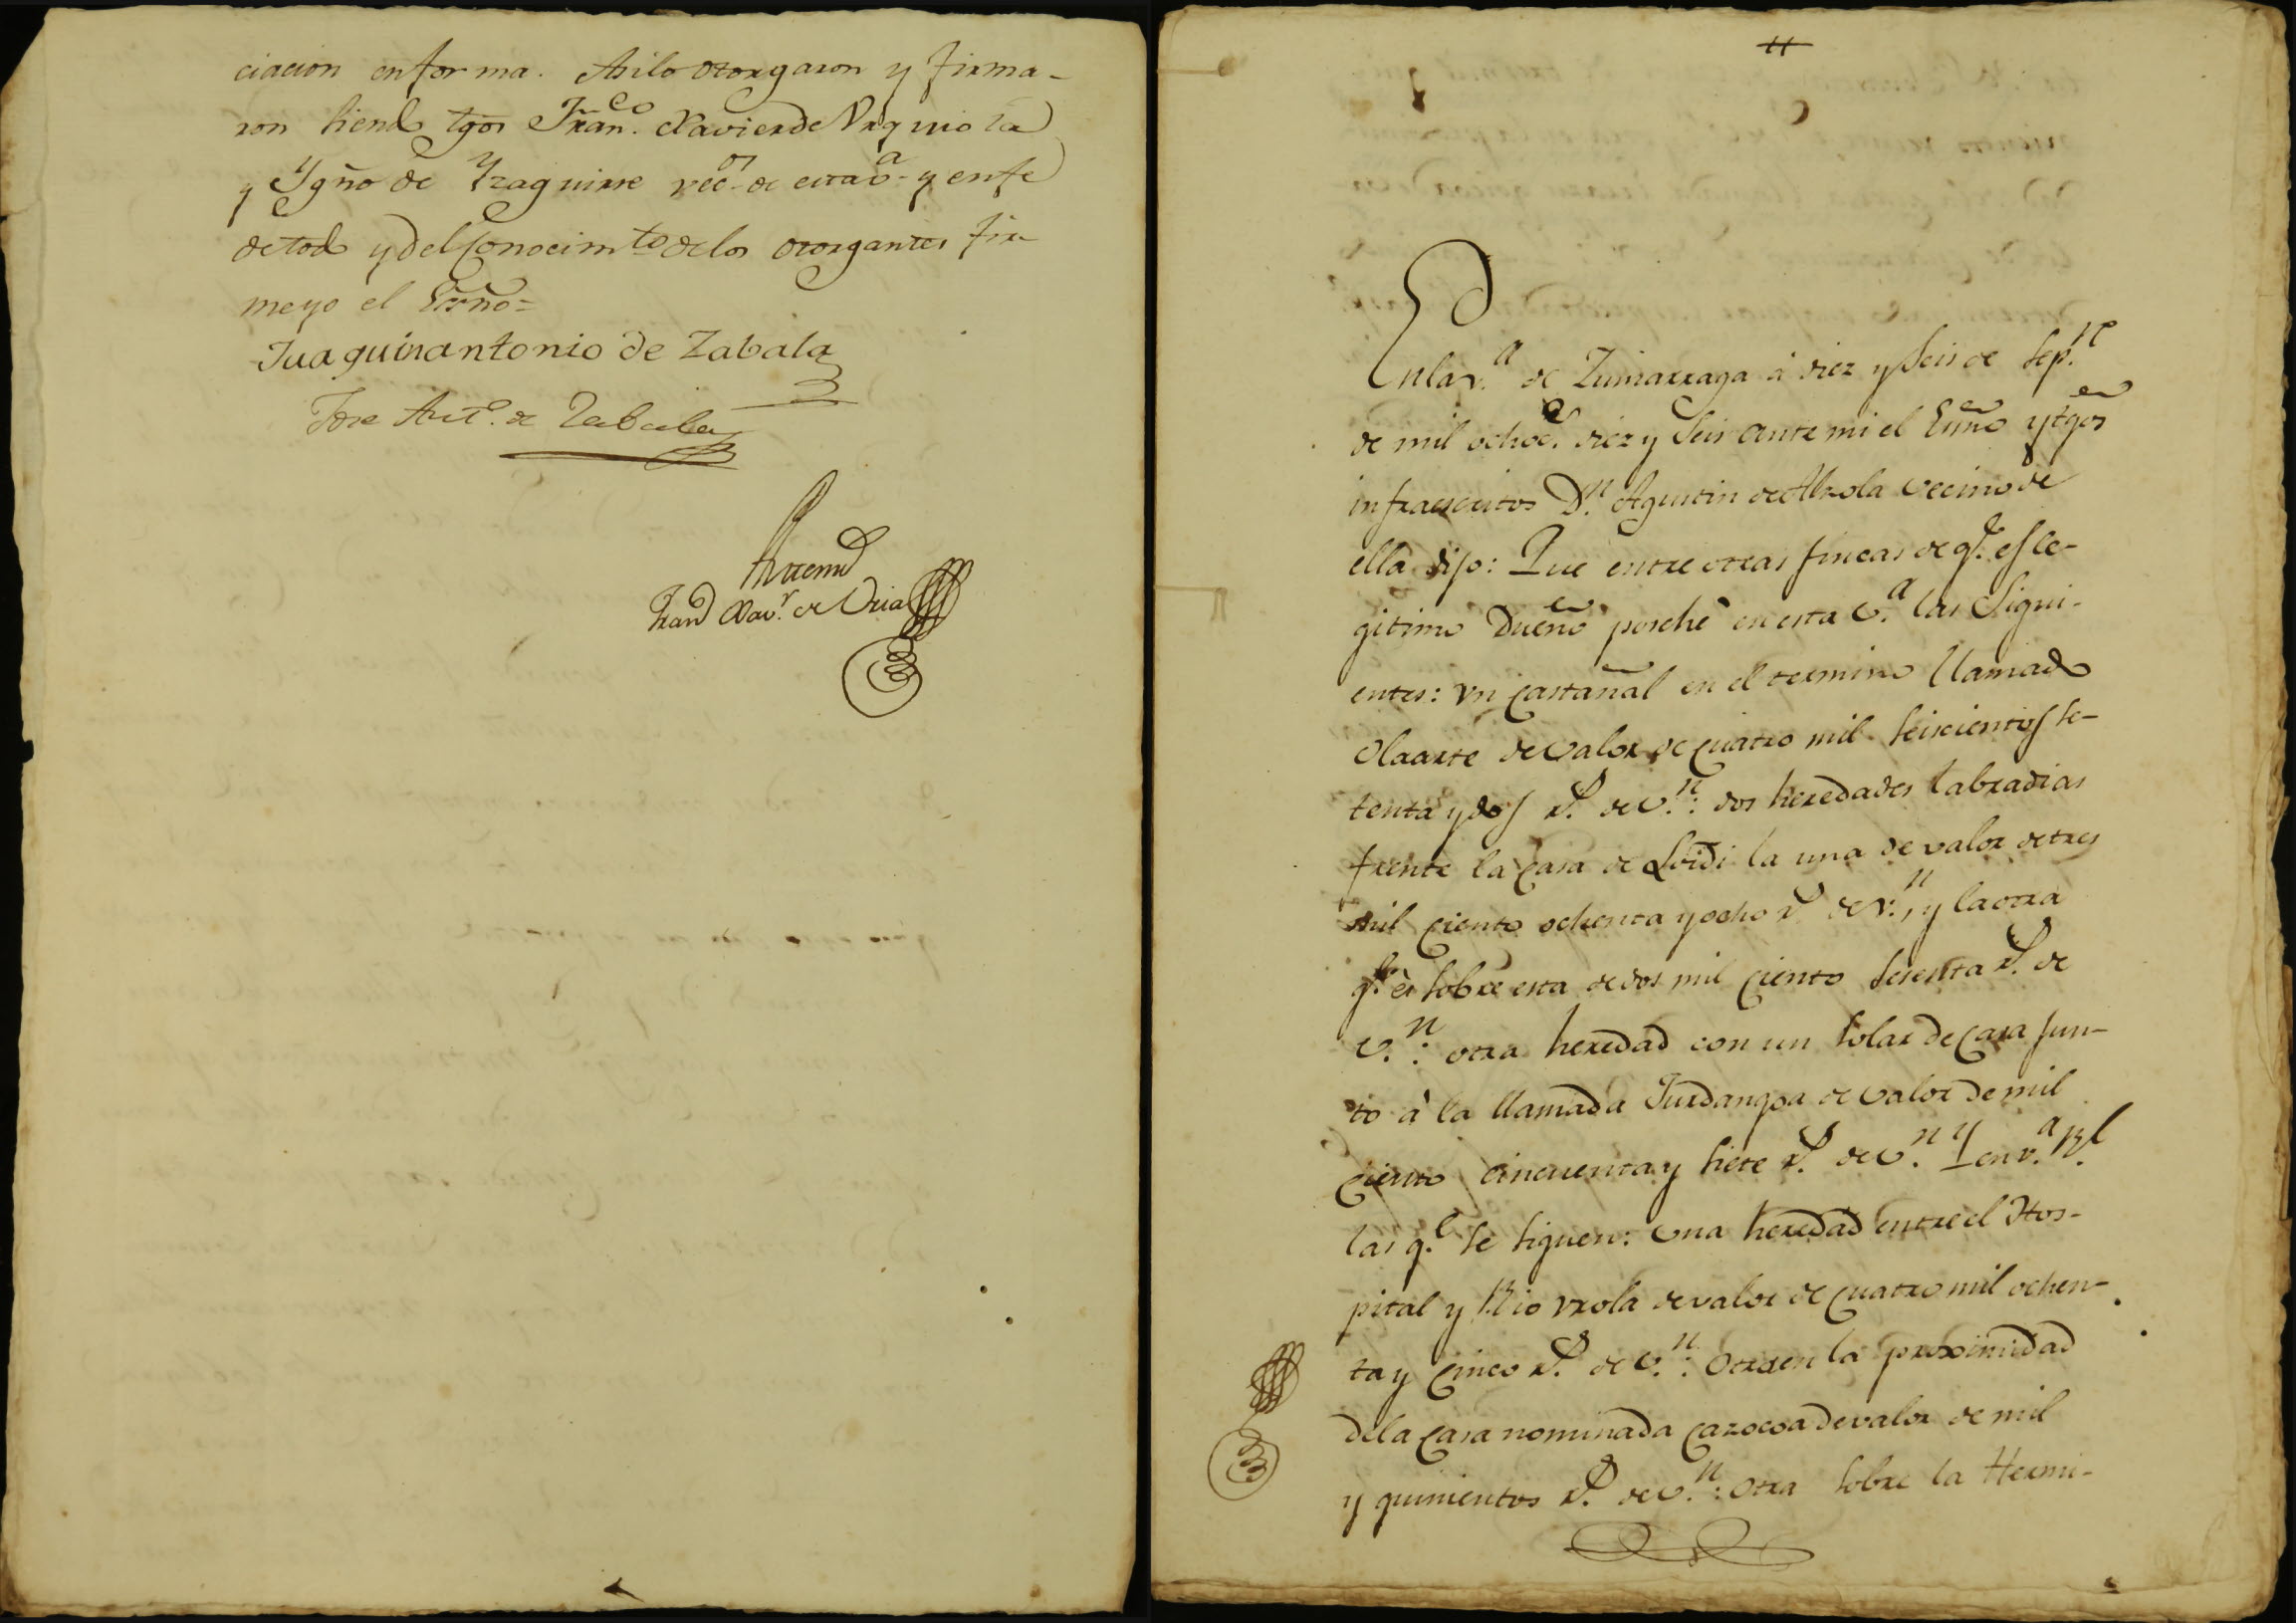 ciacion en forma. Asilo otorgaron y firma-
ron siendo tgos Fran.co Xavier de Vrquiola
y Ygño de Yzaguirre vec.os de esta v.a y en fe
de todo y del Conocim.to de los otorgantes fir-
me yo el Essño=
Juaquinantonio de Zabala
Jose Ant.o de Zabala
Antemi
Fran.co Xav.r de Oria
En la v.a de Zumarraga à diez y seis de Sep.re
de mil ochoc.s diez y seis ante mi el Essño y tgos
infraescritos D.n Agustin de Alzola vecino de
ella dijo: Que entre otras fincas de q.e es le-
gitimo Dueño posehe en esta v.a las sigui-
entes: vn Castañal en el termino llamado
Olaarte de valor de cuatro mil seiscientos se-
tenta y dos r.s de v.n: dos heredades labradias
frente la Casa de Loidi la una de valor de tres
mil ciento ochenta y ocho r.s de v.n, y la otra
q.e es sobre esta de dos mil ciento sesenta r.s de
v.n: otra heredad con un solar de Casa jun-
to à la llamada Jurdangoa de valor de mil
ciento cincuenta y siete r.s de v.n Y en v.a R.l
las q.e se siguen: una heredad entre el Hos-
pital y Rio vrola de valor de cuatro mil ochen-
ta y cinco r.s de v.n: otra en la proximidad
dela Casa nominada Cazocoa de valor de mil
y quinientos r.s de v.n: otra sobre la Hermi-